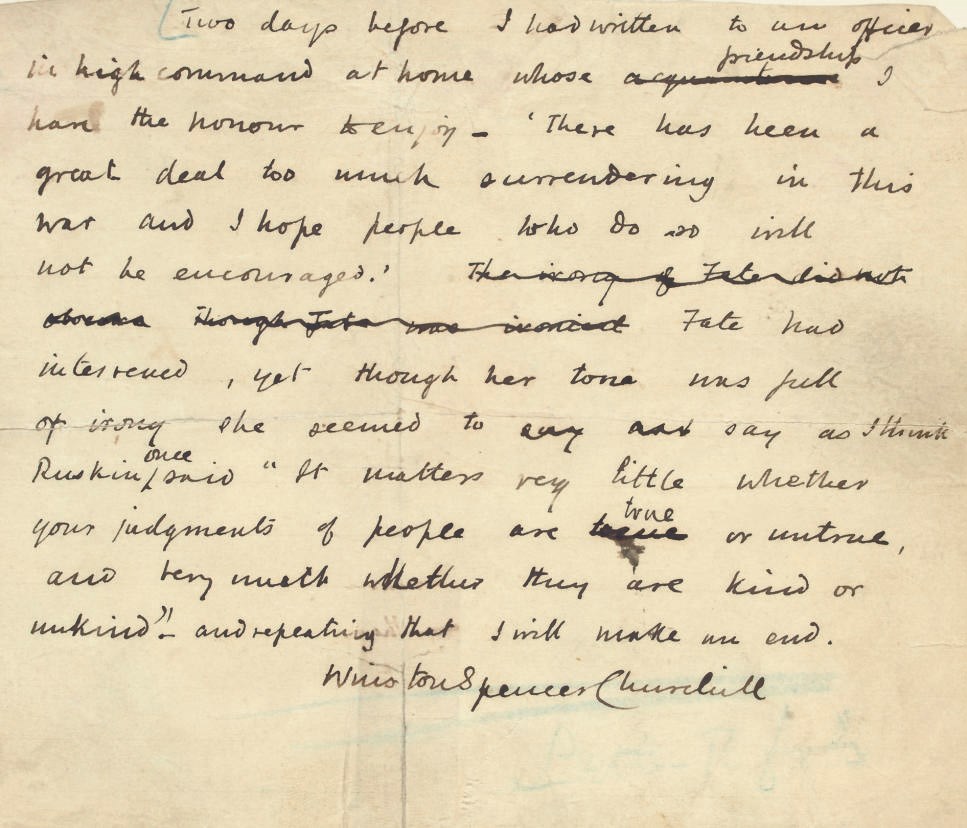 Two days before I had written to an officer
in high command at home whose acquaintance friendship I
have the honour to enjoy – 'There has been a
great deal too much surrendering in this
war and I hope people who do so will
not be encouraged.' The irony of Fate did not
though Fate was ironical Fate had
intervened, yet though her tone was full
of irony she seemed to say and say as I think
Ruskin once said "It matters very little whether
your judgments of people are true or untrue,
and very much whether they are kind or
unkind" – and repeating that I will make an end.
Winston Spencer Churchill